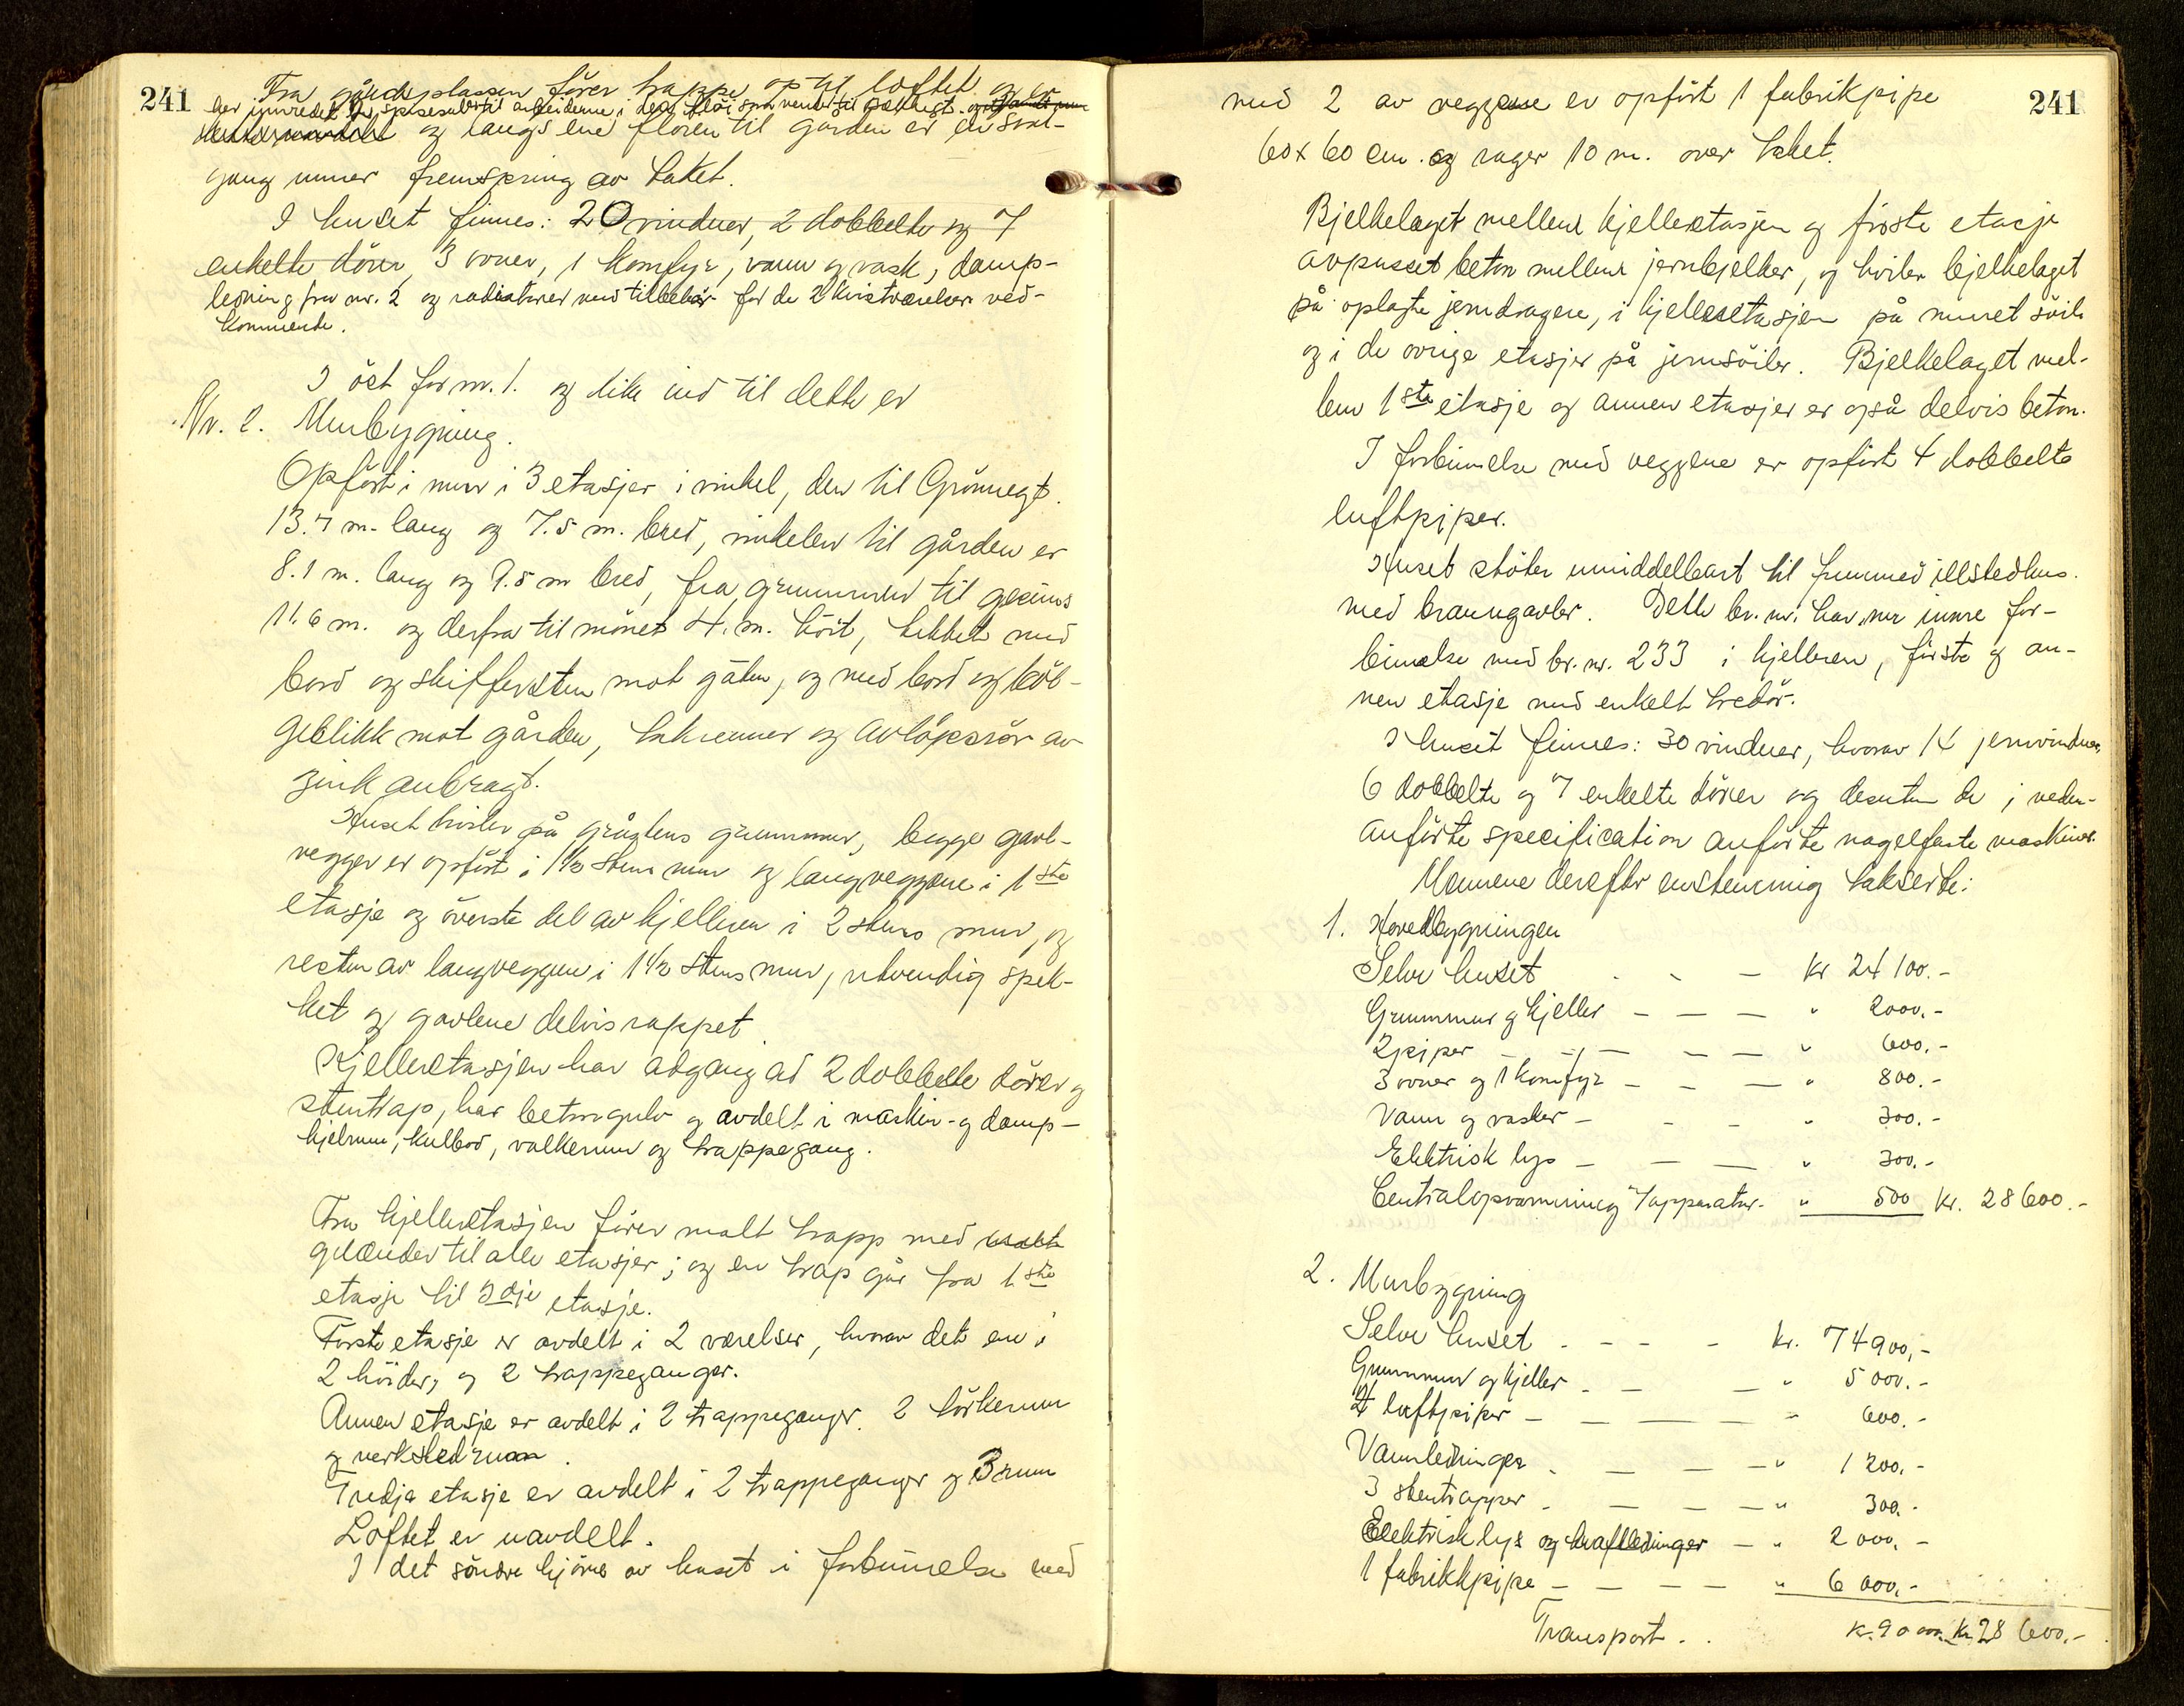 241
Fra gårdsplassen förer trappe op til loftet og er
her innredet spisesal til arbeiderne i den flöi som vender til
og langs ene flöien til gården er en sval-
gang under fremspring av taket.
I huset finnes: 20 vinduer, 2 dobbelte og 7
enkelte dörer, 3 ovner, 1 komfyr, vann og vask, damp-
ledning fra nr. 2 og radiatorer med tilbehör for de 2 kvistværelser ved-
kommende.
I öst for nr. 1. og like ind til dette er
Nr. 2. Murbygning.
Opfört i mur i 3 etasjer i vinkel, den til Grönnegt.
13.7 m. lang og 7.5 m. bred, vinkelen til gården er
8.1 m. lang og 9.5 m bred, fra grunnmur til gesims
11.6 m. og derfra til mönet 4. m. höit, tekket med
bord og skifersten mot gaten, og med bord ogböl-
geblikk mot gården, takrenner og avlöpsrör av
zink anbragt.
Huset hviler på gråstens grunnmur, begge gavl-
vegger er opfört i 1½ stens mur og langveggene i 1ste
etasje og överste del av kjelleren i 2 stens mur, og
resten av langveggen i 1½ stens mur, utvendig spek-
ket og gavlene delvis rappet.
Kjelleretasjen har adgang ad 2 dobbelte dörer og
stentrap, har betongulv og avdelt i maskin- og damp-
kjelrum, kulbod, valkerum og trappegang.
Fra kjelleretasjen förer malt trapp med malte
gelænder til alle etasjer; og en trap går fra 1ste
etasje til 3dje etasje.
Förste etasje er avdelt i 2 værelser, hvorav det ene i
2 höider, og 2 trappeganger.
Annen etasje er avdelt i 2 trappeganger. 2 törkerum
og verkstedrum.
Tredje etasje er avdelt i 2 trappeganger og 3 rum
Loftet er uavdelt.
I det söndre hjörne av huset i forbinnelse med
241
med 2 av veggene er opfört 1 fabrikpipe
60x60 cm. og rager 10 m. over taket.
Bjelkelaget mellem kjelleretasjen og förste etasje
avpusset beton mellem jernbjelker, og hviler bjelkelaget
på oplagte jerndragere, i kjelleretasjen på muret söile
og i de övrige etasjer på jernsöiler. Bjelkelaget mel-
lem 1ste etasje og annen etasjer er også delvis beton.
I forbinnelse med veggene er opfört 4 dobbelte
luftpiper.
Huset stöter umiddelbart til fremmed illstedhus.
med branngavler. Dette br. nr. har nu innre for-
binnelse med br. nr. 233 i kjelleren, förste og an-
nen etasje med enkelt tredör.
I huset finnes: 30 vinduer, hvorav 14 jernvinduer,
6 dobbelte og 7 enkelte dörer og desuten de i neden-
anförte specification anförte nagelfaste maskiner.
Mennene derefter enstemmig takserte:
1. Hovedbygningen
Selve huset - - - kr 24 100.-
Grunnmur og kjeller - - - " 2000.-
2 piper - - - - - " 600.-
3 ovner og 1 komfyr - - - " 800.-
Vann og vasker - - - " 300.-
Elektrisk lys - - - " 300.-
Centralopvarmning apparater. " 500 kr. 28600.-
2. Murbygning
Selve huset - - - - kr. 74900,-
Grunnmur og kjeller - - - " 5000.-
4 luftpiper - - - - - " 600.-
Vannledninger - - - - " 1200.-
3 stentrapper - - - - " 300.-
Elektrisk lys og kraftledninger - " 2000,-
1 fabrikkpipe - - - - " 6000.-
Transport . . K. 90 000. Kr. 28 600.-